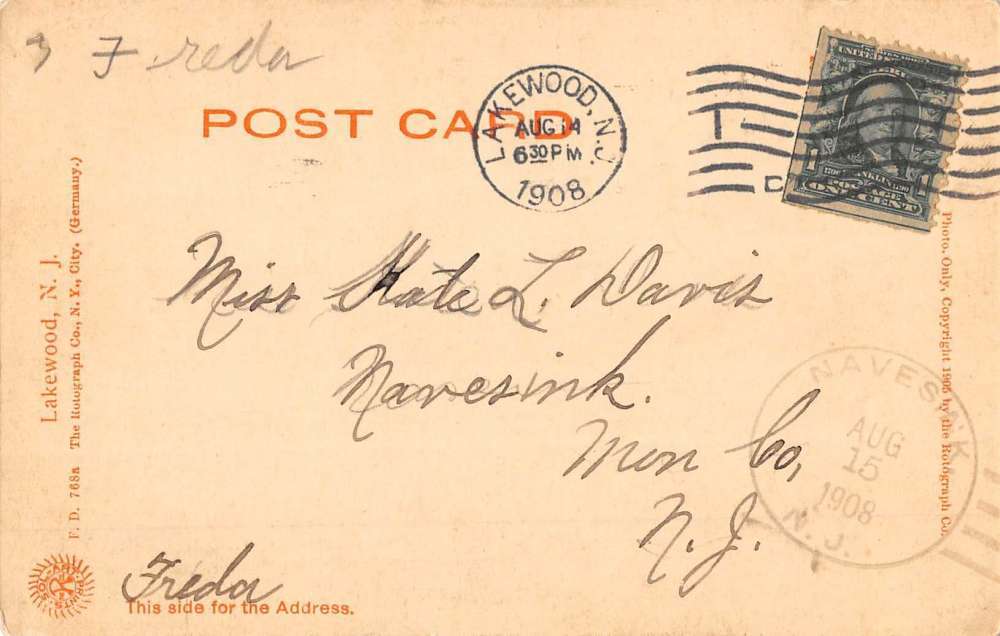 Freda
POST CARD
LAKEWOOD, N.J.
AUG 14
6 30 PM
1908
ONE CENT
Miss Kate L. Davis
Navesink.
Mon Co,
N. J.
NAVESINK, N.J.
AUG
15
1908
Lakewood, N. J.
F. D. 768a The Rotograph Co., N. Y., City. (Germany.)
Photo. Only, Copyright 1905 by the Rotograph Co.
SOL-ART PRINTS
Freda
This side for the Address.